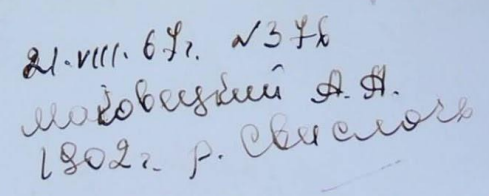 21.VIII.67г. N37к
Маковецкий А.А.
1902г. р. Свислочь